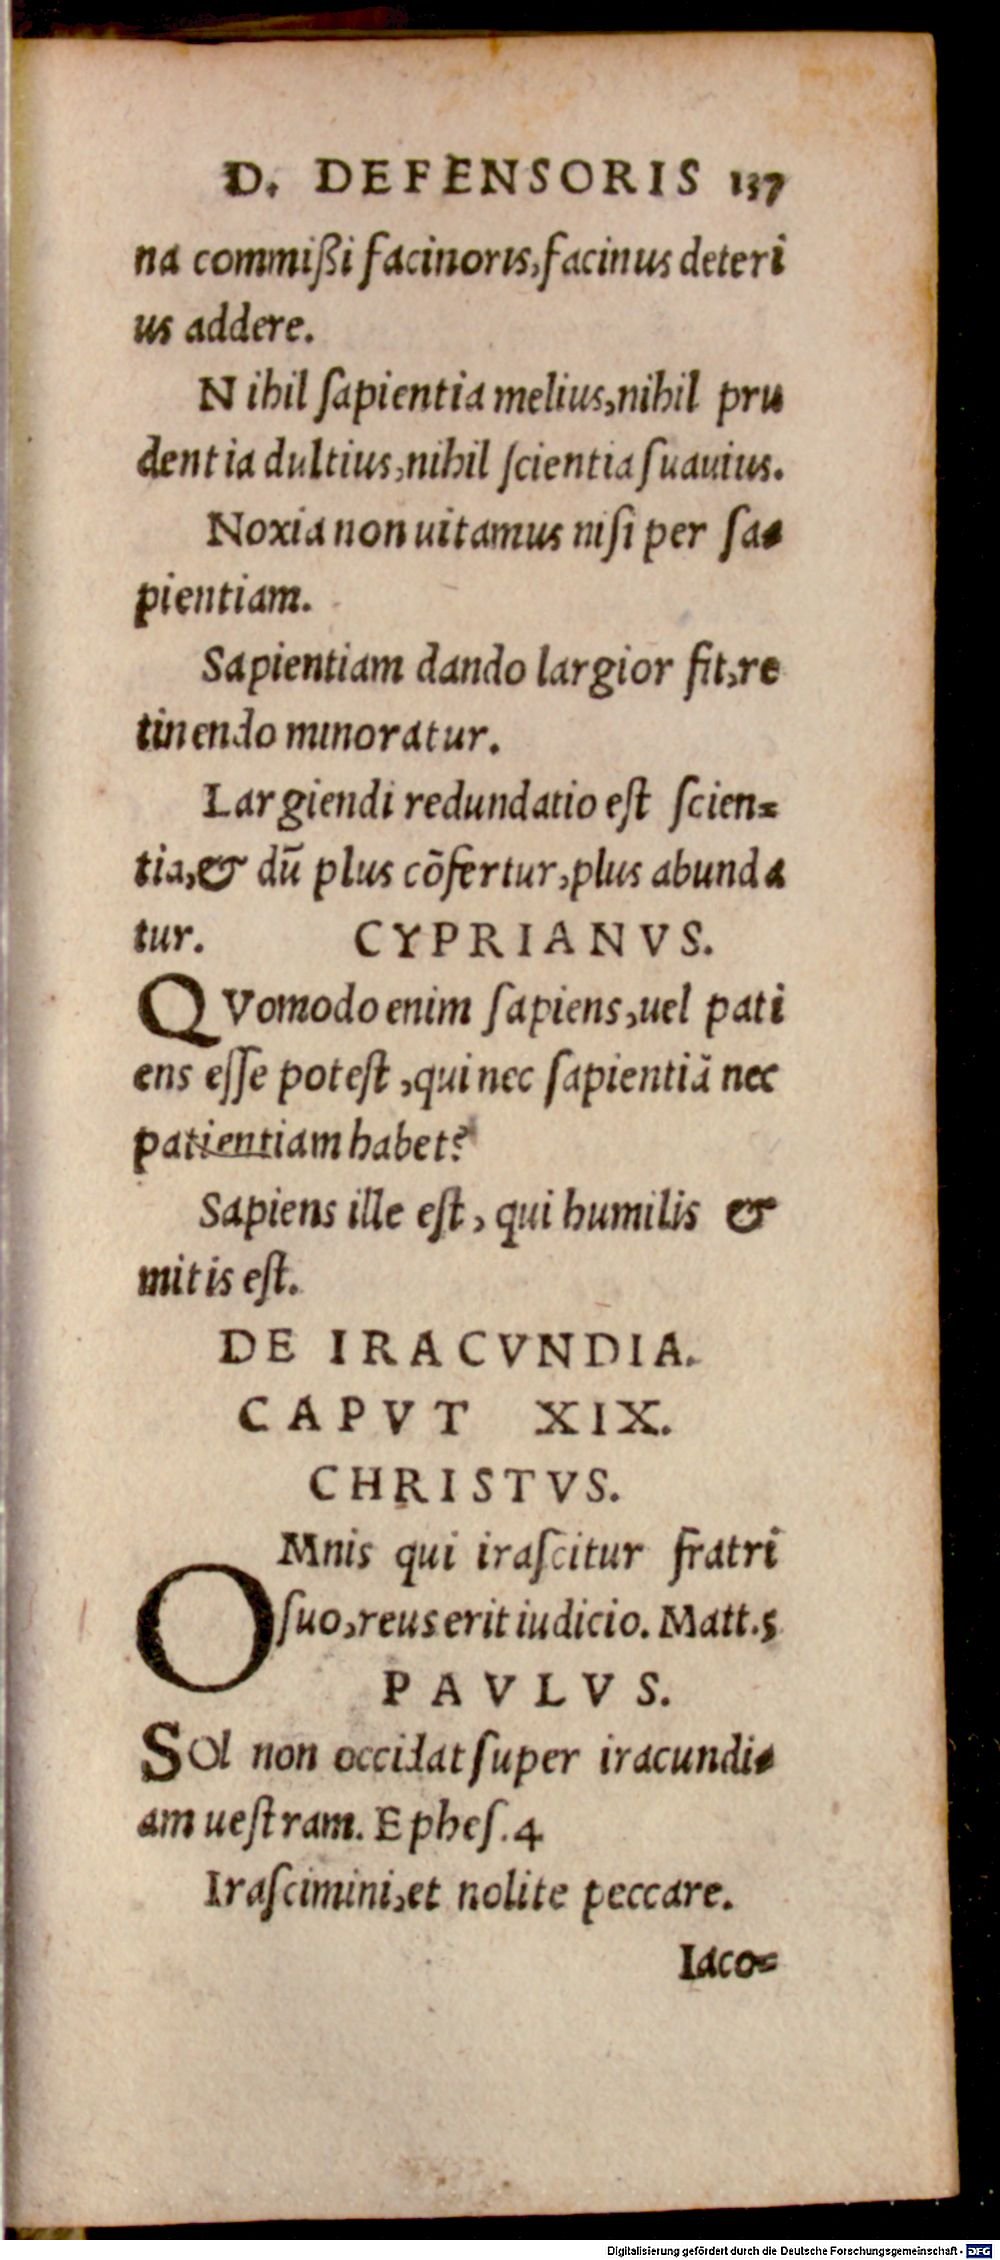 D. DEFENSORIS 137
na commißi facinoris,facinus deteri
us addere.
Nihil ſapientia melius,nihil pru
dentia dultius,nihil ſcientia ſuauius.
Noxia non uitamus niſi per ſa-
pientiam.
Sapientiam dando largior fit,re
tinendo minoratur.
Largiendi redundatio eſt ſcien=
tia,& dū plus cōfertur,plus abunda
tur. CYPRIANVS.
QVomodo enim ſapiens,uel pati
ens eſſe poteſt ,qui nec ſapientiā nec
patientiam habet?
Sapiens ille eſt, qui humilis &
mitis eſt.
DE IRACVNDIA.
CAPVT XIX.
CHRISTVS.
OMnis qui iraſcitur fratri
ſuo,reus erit iudicio. Matt.5
PAVLVS.
SOl non occidat ſuper iracundi-
am ueſtram. Epheſ.4
Iraſcimini,et nolite peccare.
Iaco=
Digitalisierung gefördert durch die Deutsche Forschungsgemeinschaft - DFG